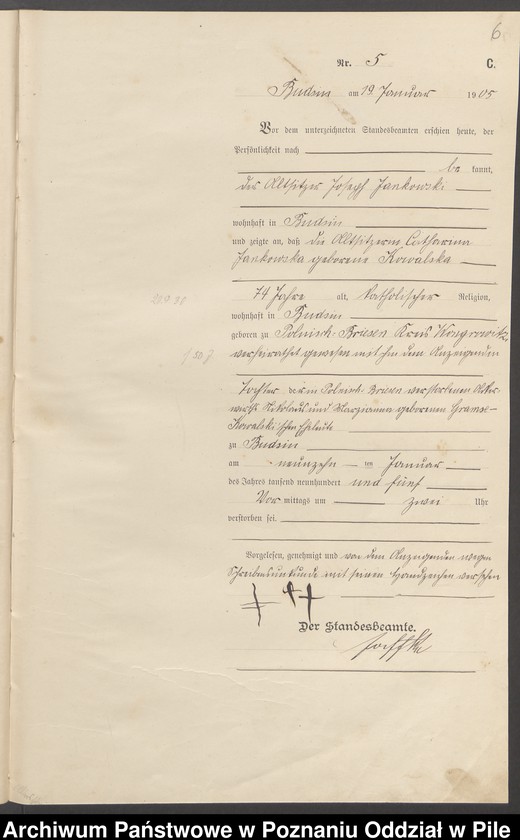 6
Nr. 5 C.
Budsin am 19. Januar 1905
Vor dem unterzeichneten Standesbeamten erschien heute, der
Persönlichkeit nach
be kannt,
der Altsitzer Joseph Jankowski
wohnhaft in Budsin
und zeigte an, daß die Altsitzerin Catharina
Jankowska geborene Kowalska
74 Jahre alt, katholischer Religion,
wohnhaft in Budsin
geboren zu Polnisch-Briesen Kreis Wongrowitz
verheirathet gewesen mit ihm dem Anzeigenden
Tochter der in Polnisch-Briesen verstorbenen
Nikolaus und Marzianna geborenen
Kowalski'schen Eheleute
zu Budsin
am neunzehn ten Januar
des Jahres tausend neunhundert und fünf
Vor mittags um zwei Uhr
verstorben sei.
Vorgelesen, genehmigt und von dem Anzeigenden wegen
Schreibensunkunde mit seinen Handzeichen versehen
+ + +
Der Standesbeamte.
Archiwum Państwowe w Poznaniu Oddział w Pile